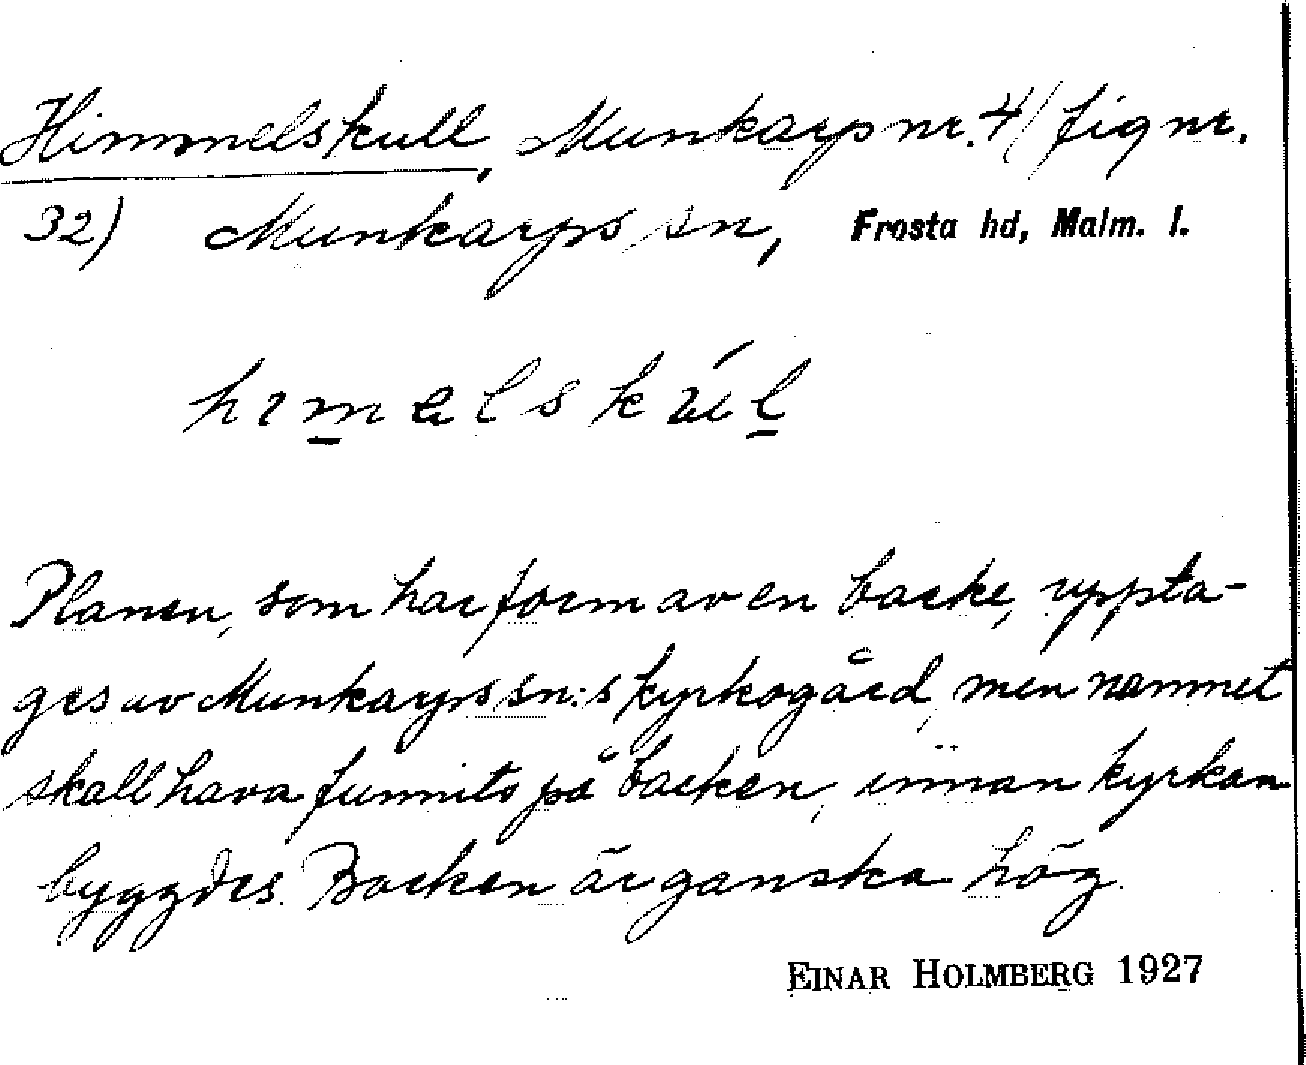 Himmelskull, Munkarp nr. 4 (fig nr.
32) Munkarps sn, Frosta hd, Malm. l.
Planen, som har form av en backe, uppta-
ges av Munkarps sn:s kyrkogård, men namnet
skall hava funnits på backen, innan kyrkan
byggdes. Backen är ganska hög.
EINAR HOLMBERG 1927